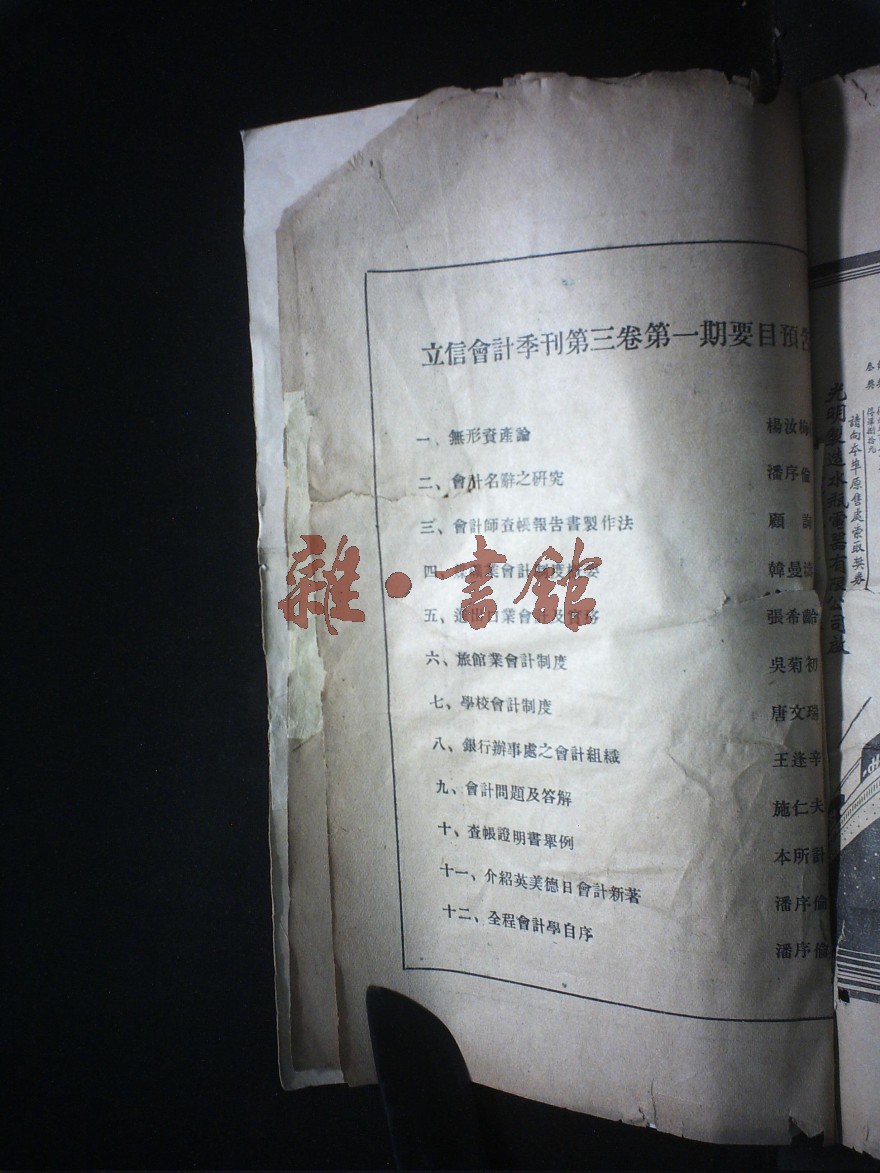 立信會計季刊第三卷第一期要目預告
一、無形資產論 楊汝梅
二、會計名辭之研究 潘序倫
三、會計師查帳報告書製作法 顧詢
四、業會計制度 韓曼
五、進出口業會計及實務 張希齡
六、旅館業會計制度 吳菊初
七、學校會計制度 唐文瑞
八、銀行辦事處之會計組織 王逢辛
九、會計問題及答解 施仁夫
十、查帳證明書舉例 本所計
十一、介紹英美德日會計新著 潘序倫
十二、全程會計學自序 潘序倫
雜·書館
請向本埠原售處索取獎券
光明製造水瓶電器有限公司啟